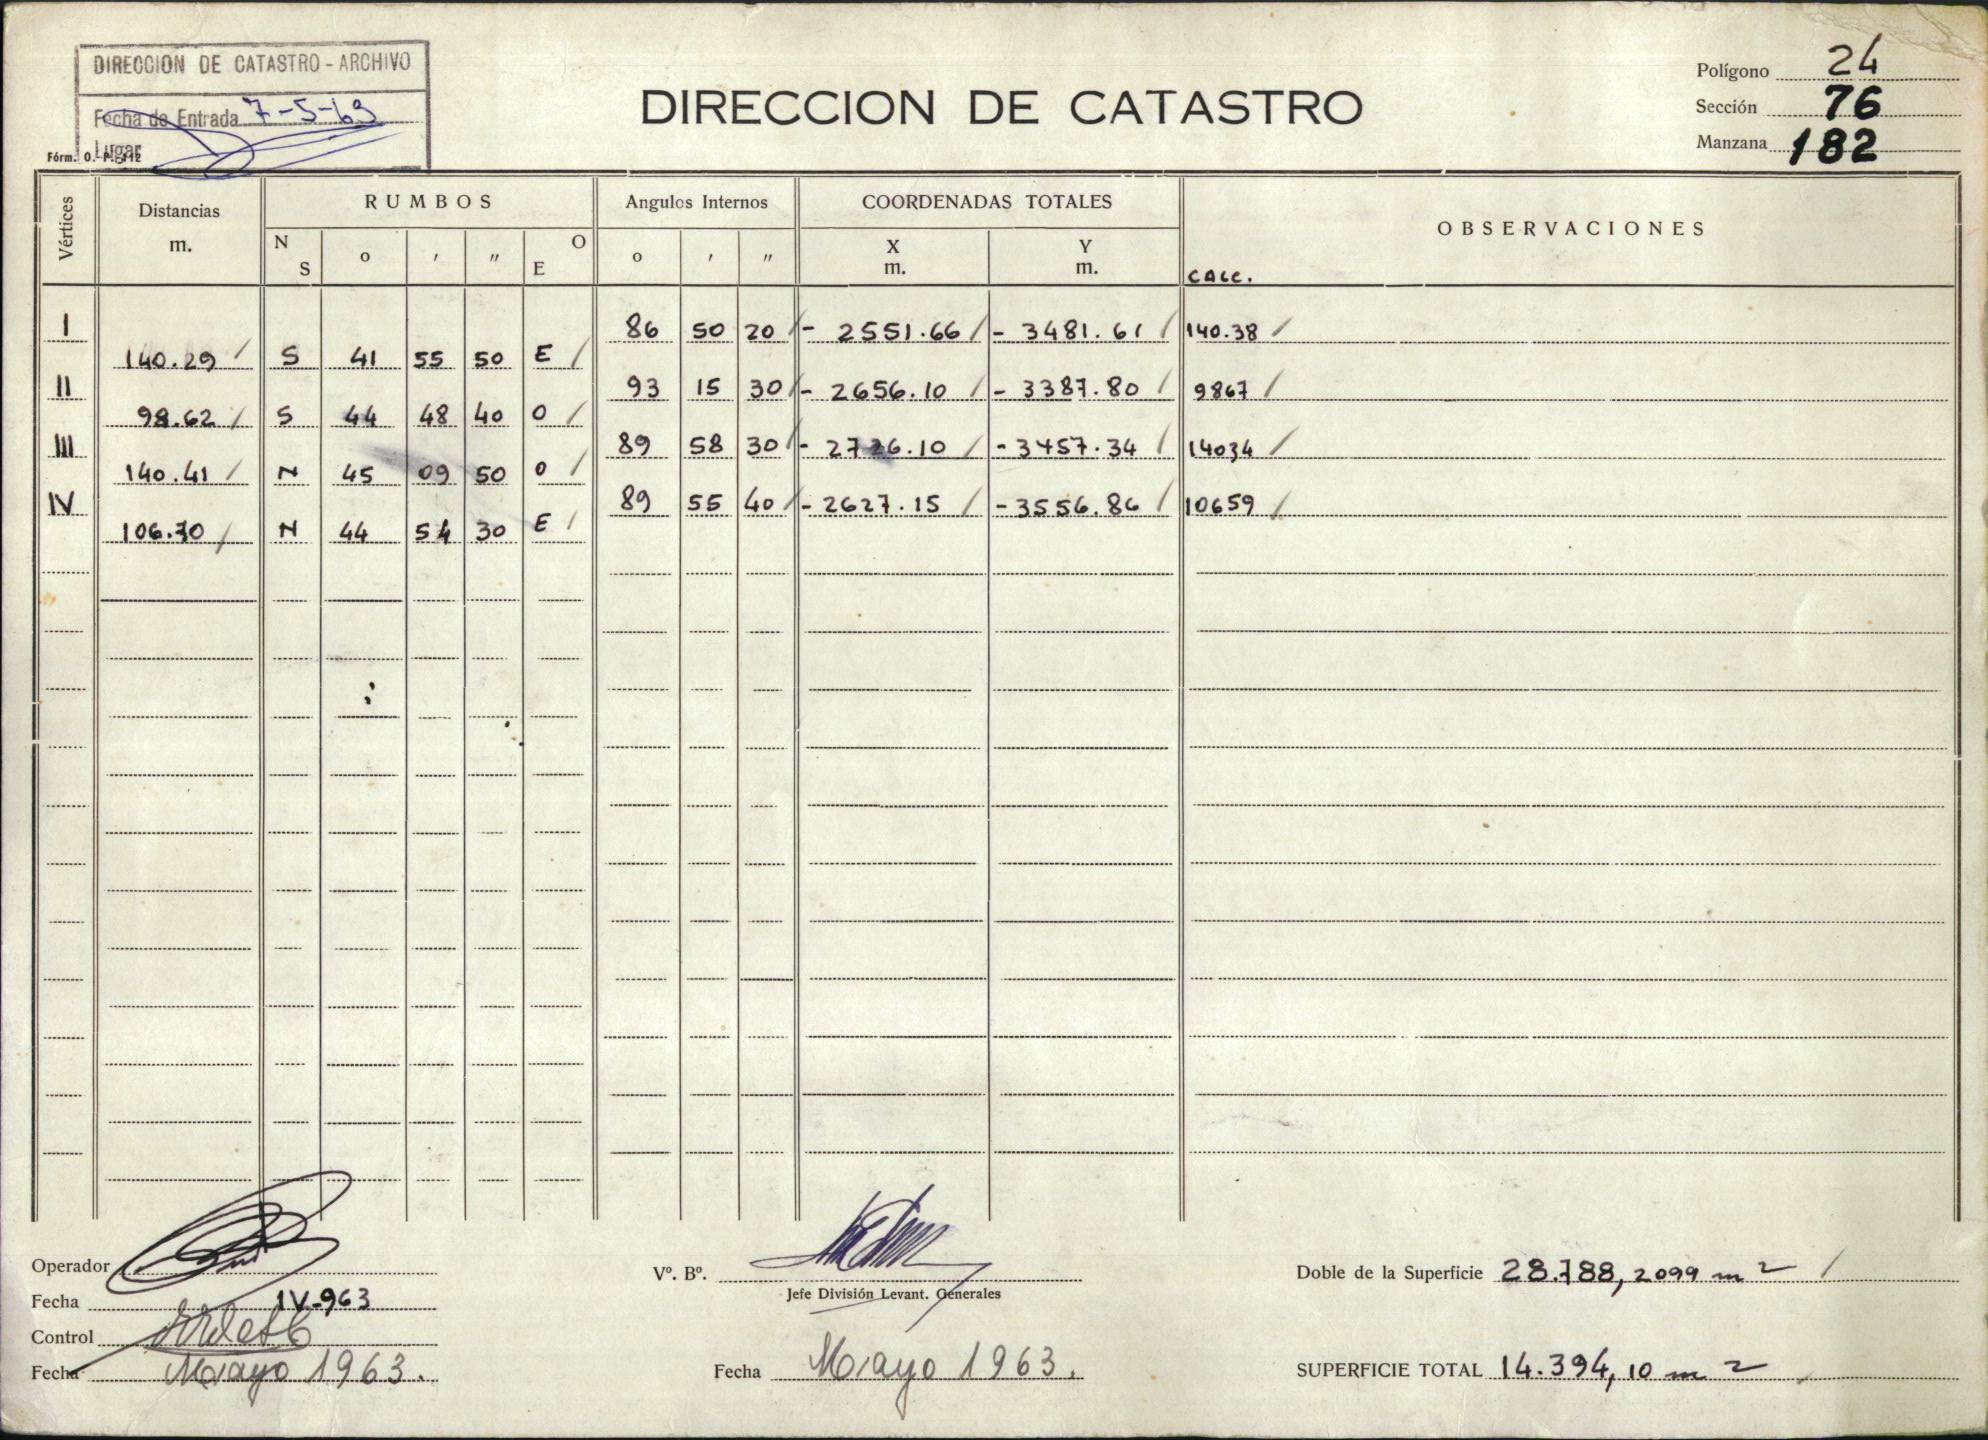 DIRECCION DE CATASTRO - ARCHIVO
Fecha de Entrada 7-5-63
Lugar
Fórm. O. P. 312
DIRECCION DE CATASTRO
Polígono 24
Sección 76
Manzana 182
Vértices Distancias m. RUMBOS Angulos Internos COORDENADAS TOTALES OBSERVACIONES
N S o ' " O E o ' " X m. Y m. CALC.
I 86 50 20 - 2551.66 - 3481.61 140.38
140.29 S 41 55 50 E
II 93 15 30 - 2656.10 - 3387.80 9867
98.62 S 44 48 40 O
III 89 58 30 - 2726.10 - 3457.34 14034
140.41 N 45 09 50 O
IV 89 55 40 - 2627.15 - 3556.86 10659
106.70 N 44 54 30 E
Operador
Fecha IV-963
Control
Fecha Mayo 1963.
Vº. Bº.
Jefe División Levant. Generales
Fecha Mayo 1963.
Doble de la Superficie 28.788,2099 m2
SUPERFICIE TOTAL 14.394,10 m2